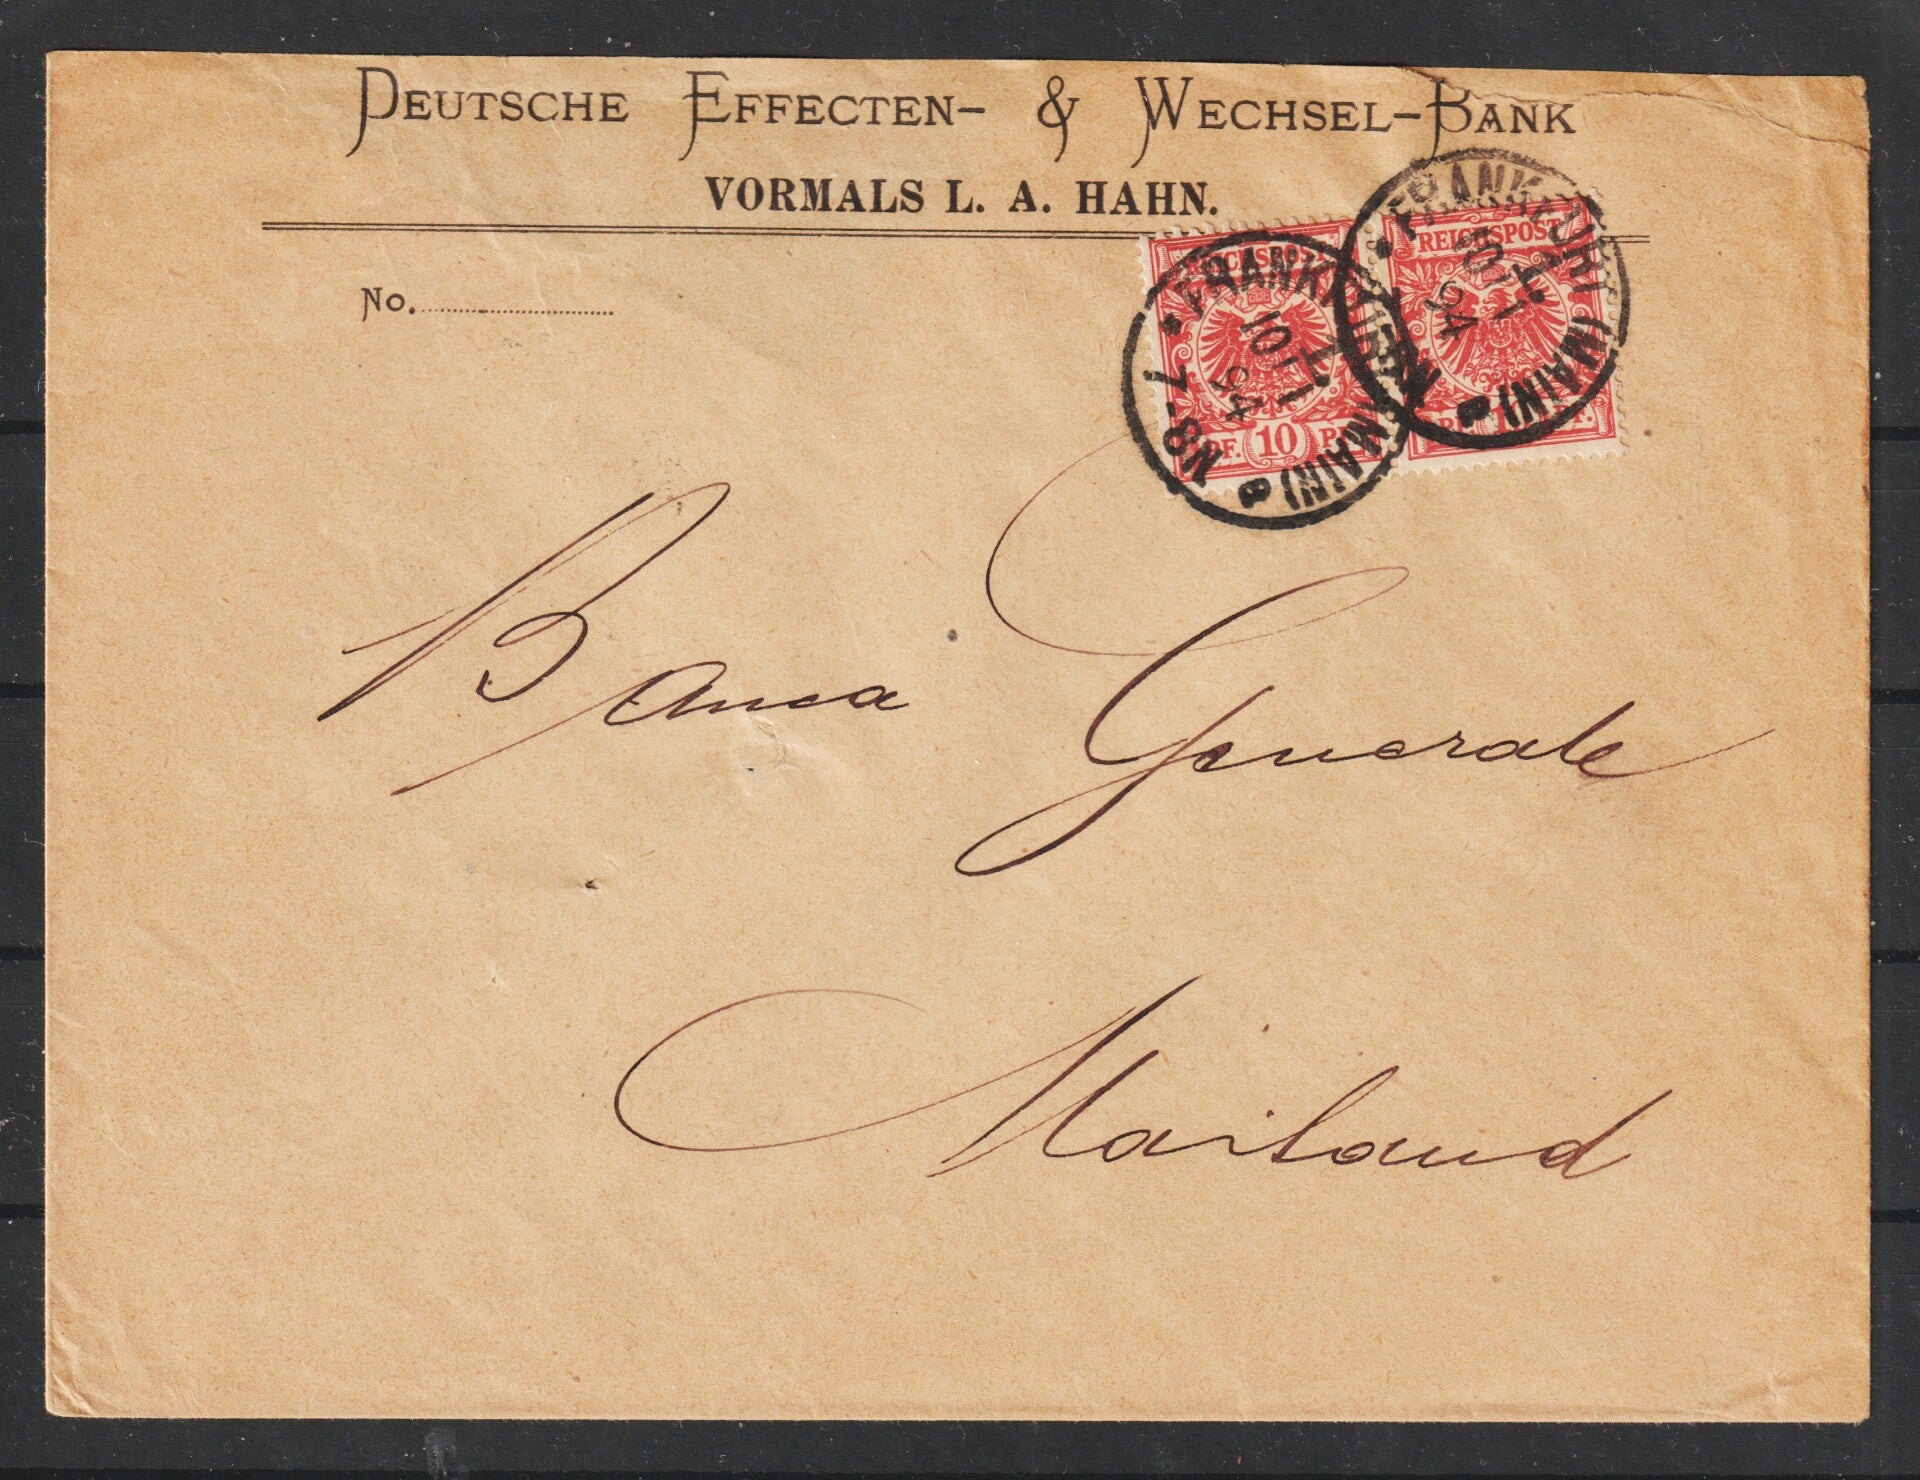 DEUTSCHE EFFECTEN- & WECHSEL-BANK
VORMALS L. A. HAHN.
No.
REICHSPOST
REICHSPOST
PF. 10 PF.
FRANKFURT (MAIN) a
1.
10/1
94
7-8N
FRANKFURT (MAIN) a
1.
10/1
94
Banca Generale
Mailand